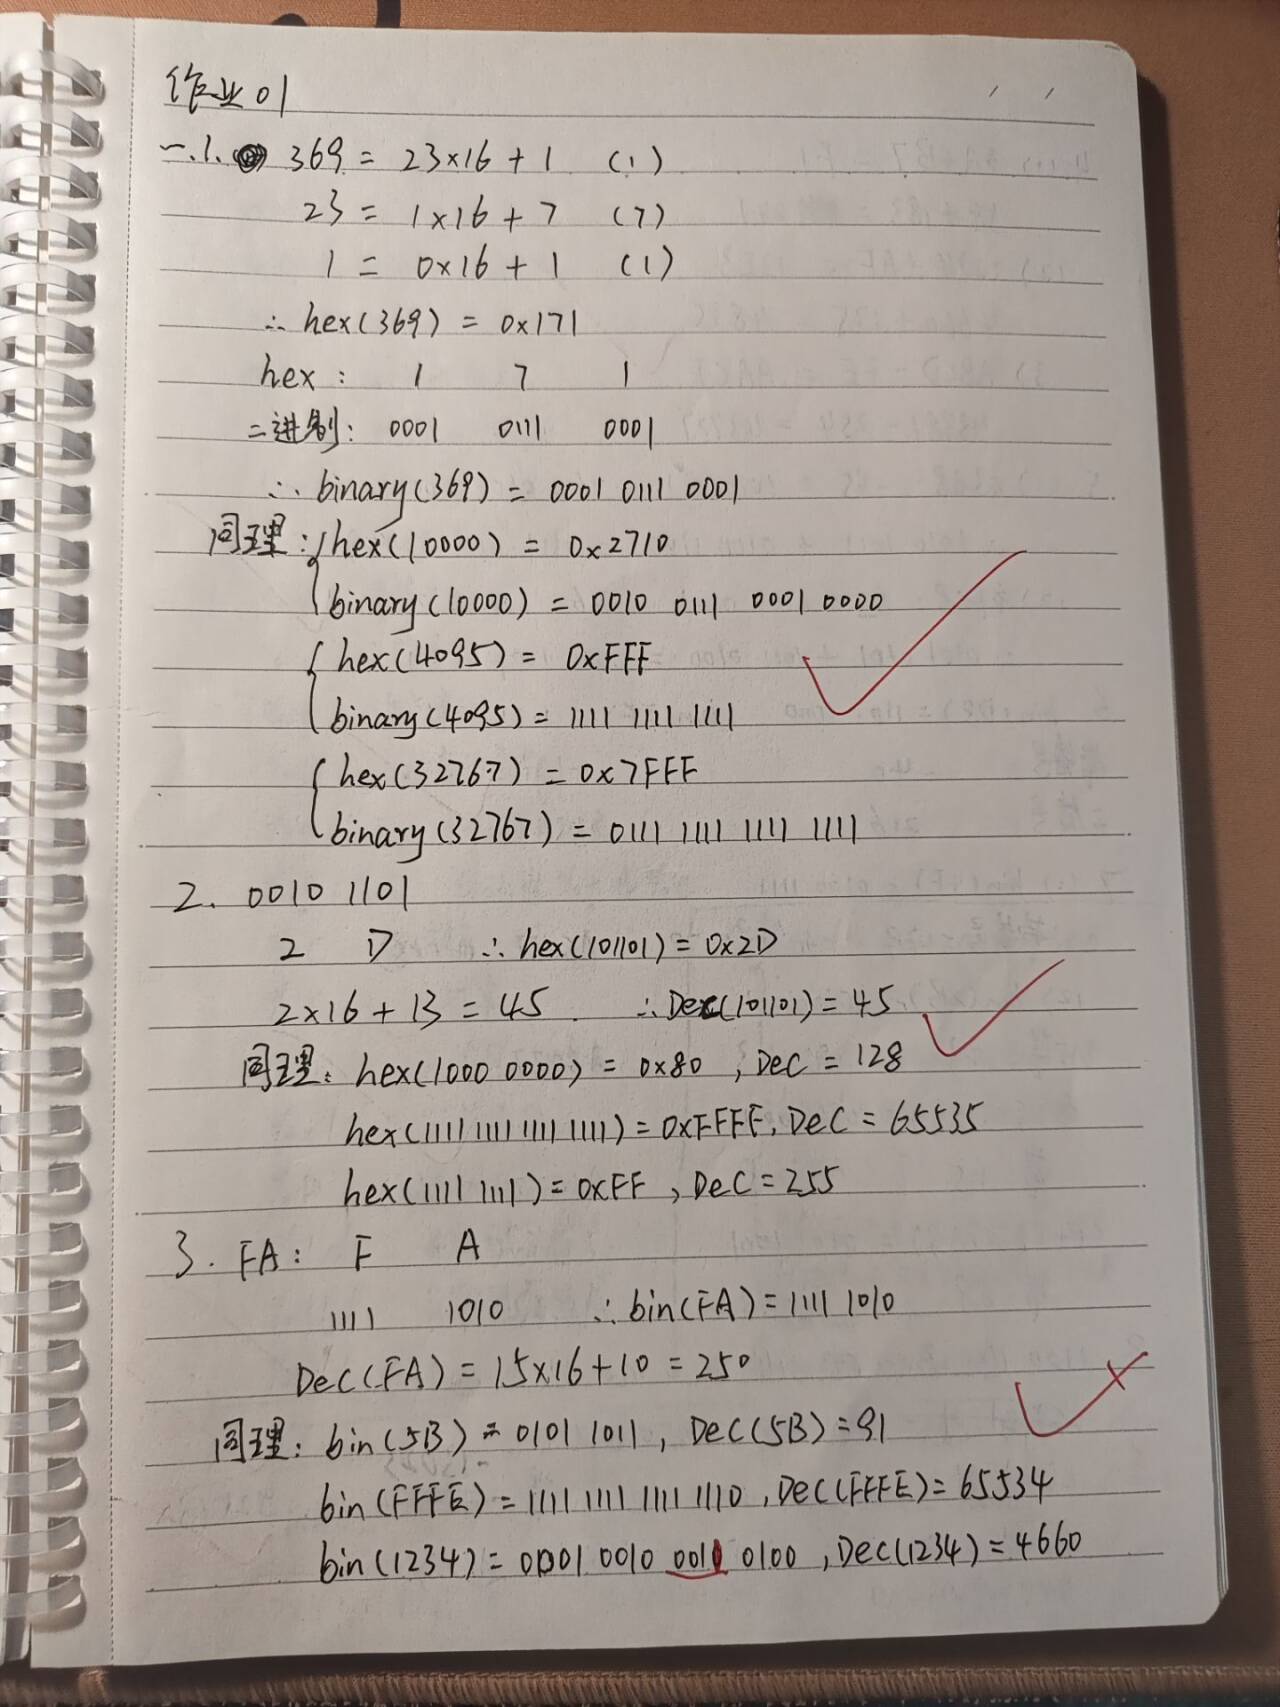 作业01
一.1. 369 = 23×16 + 1 (1)
23 = 1×16 + 7 (7)
1 = 0×16 + 1 (1)
∴ hex(369) = 0×171
hex: 1 7 1
二进制: 0001 0111 0001
∴ binary(369) = 0001 0111 0001
同理: hex(10000) = 0×2710
binary(10000) = 0010 0111 0001 0000
hex(4095) = 0xFFF
binary(4095) = 1111 1111 1111
hex(32767) = 0×7FFF
binary(32767) = 0111 1111 1111 1111
2. 0010 1101
2 D ∴ hex(101101) = 0×2D
2×16 + 13 = 45 ∴ Dec(101101) = 45
同理: hex(1000 0000) = 0×80, Dec = 128
hex(1111 1111 1111 1111) = 0xFFFF, Dec = 65535
hex(1111 1111) = 0xFF, Dec = 255
3. FA: F A
1111 1010 ∴ bin(FA) = 1111 1010
Dec(FA) = 15×16 + 10 = 250
同理: bin(5B) = 0101 1011, Dec(5B) = 91
bin(FFFE) = 1111 1111 1111 1110, Dec(FFFE) = 65534
bin(1234) = 0001 0010 0011 0100, Dec(1234) = 4660